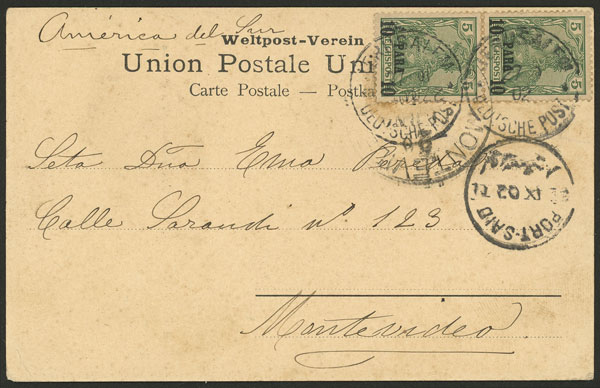 América del Sur
Weltpost-Verein
Union Postale Uni
Carte Postale — Postka
5 5
REICHSPOST
10 PARA 10
10 PARA 10
JERUSALEM
DEUTSCHE POST
DEUTSCHE POST
MONTE
PORT-SAID
IX 02
Srta Dña Ema
Calle Sarandí nº 123
Montevideo